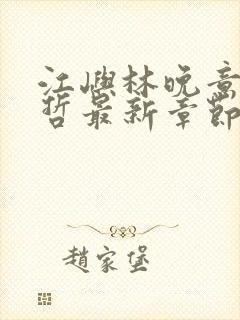 江嶼林晚意
哲最新章節
趙家堡